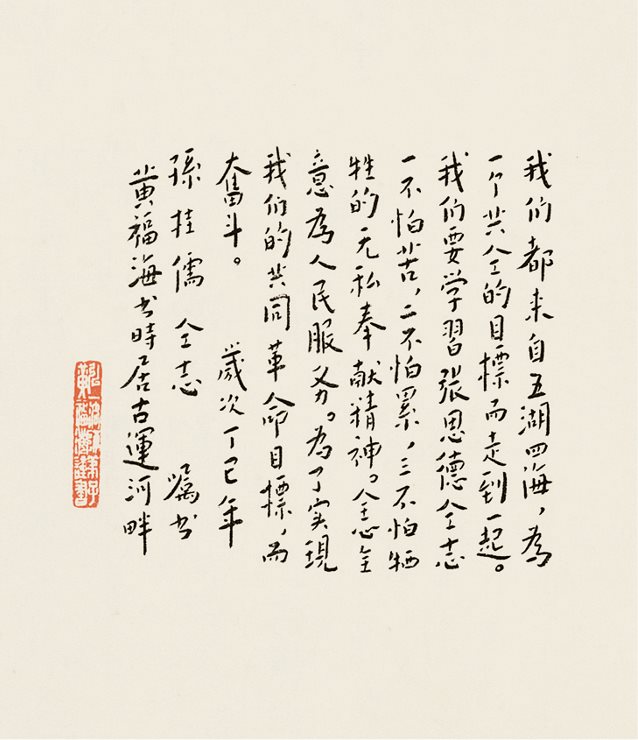 我们都来自五湖四海，為
一个共仝的目標而走到一起。
我们要学習張思德仝志
一不怕苦，二不怕累，三不怕牺
牲的无私奉献精神。全心全
意為人民服务。为了实現
我们的共同革命目標，而
奮斗。 歲次丁巳年
孫桂儒仝志 嘱书
黄福海书時居古運河畔